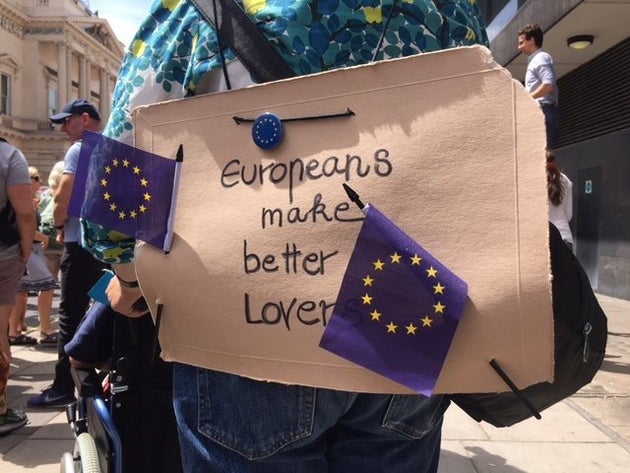 Europeans
make
better
Lovers